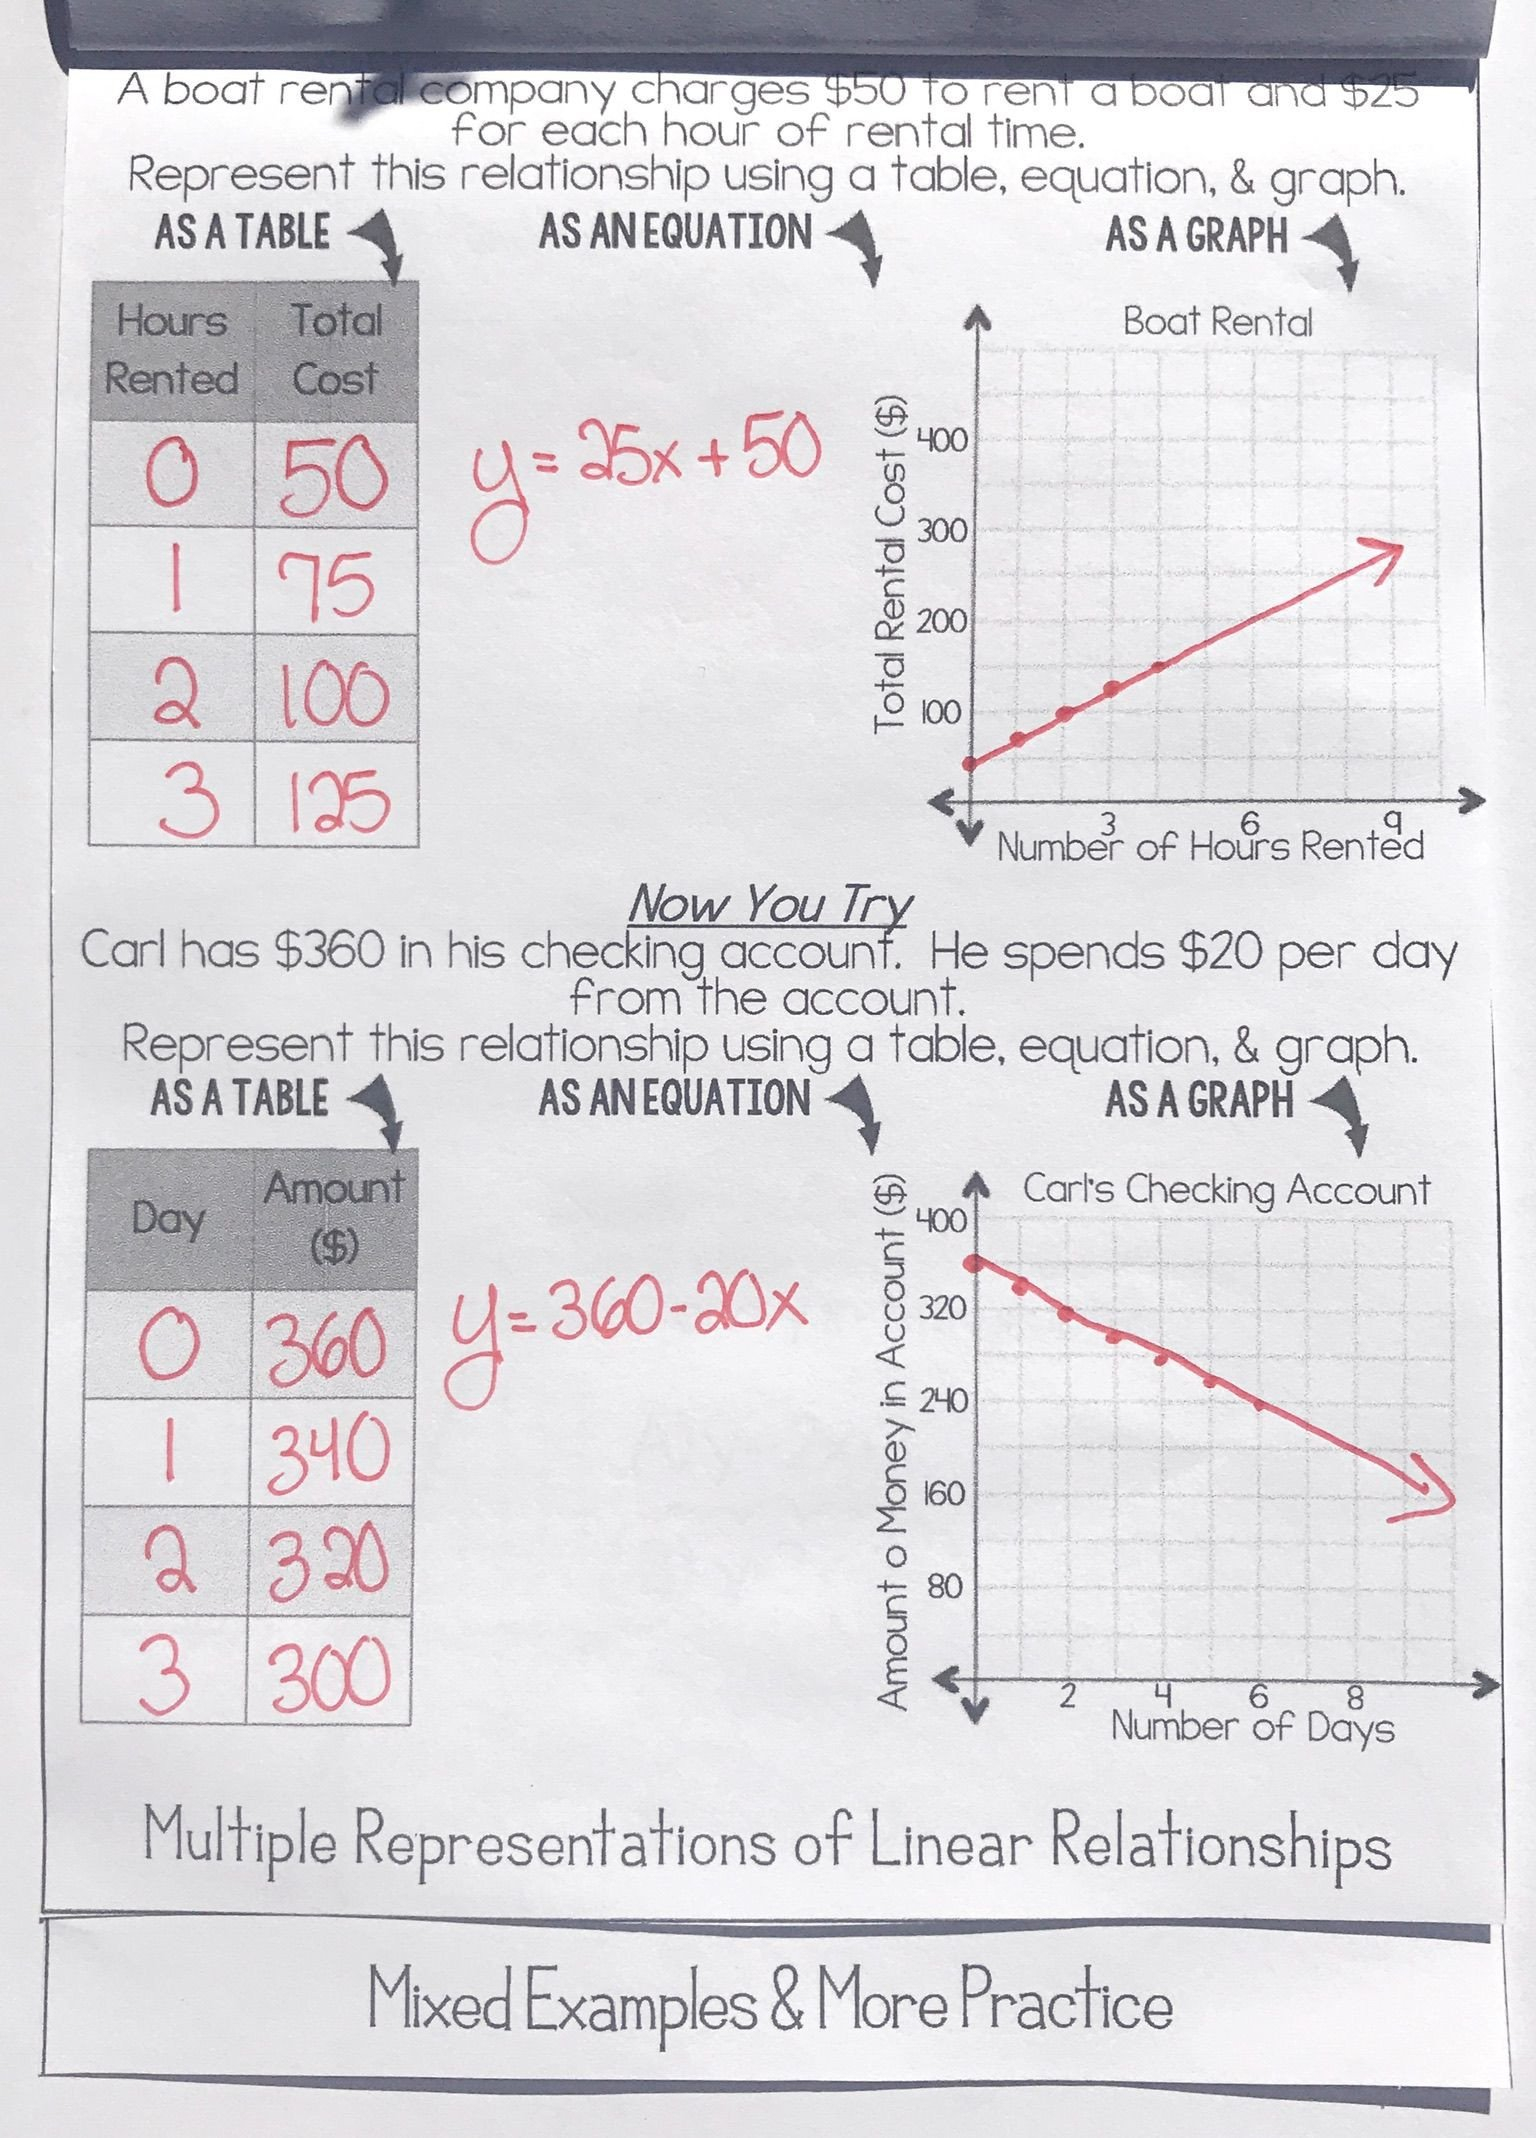 A boat rental company charges $50 to rent a boat and $25
for each hour of rental time.
Represent this relationship using a table, equation, & graph.
AS A TABLE AS AN EQUATION AS A GRAPH
Hours Rented Total Cost
0 50
1 75
2 100
3 125
y = 25x + 50
Boat Rental
Total Rental Cost ($)
400
300
200
100
3 6 9
Number of Hours Rented
Now You Try
Carl has $360 in his checking account. He spends $20 per day
from the account.
Represent this relationship using a table, equation, & graph.
AS A TABLE AS AN EQUATION AS A GRAPH
Day Amount ($)
0 360
1 340
2 320
3 300
y = 360 - 20x
Carl's Checking Account
Amount o Money in Account ($)
400
320
240
160
80
2 4 6 8
Number of Days
Multiple Representations of Linear Relationships
Mixed Examples & More Practice